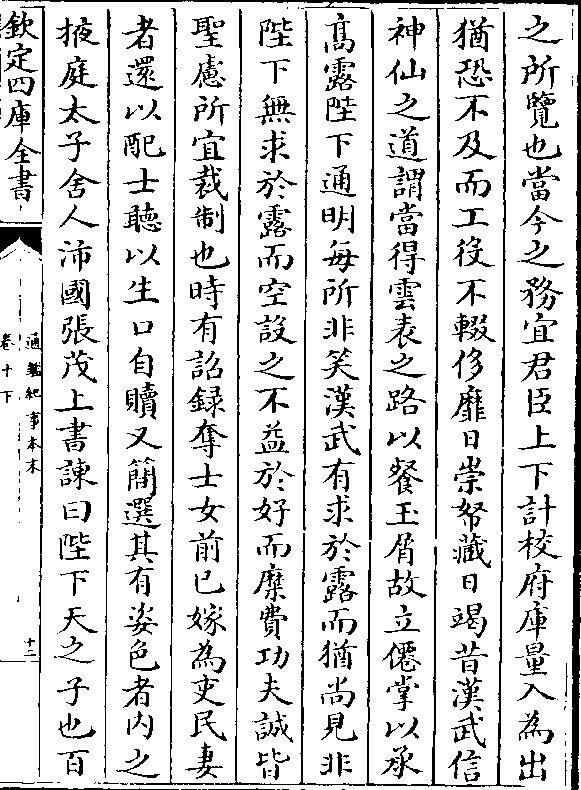 之所覽也當今之務宜君臣上下計校府庫量入為出
猶恐不及而工役不輟侈靡日崇帑藏日竭昔漢武信
神仙之道謂當得雲表之路以餐玉屑故立僊掌以承
髙露陛下通明每所非笑漢武有求於露而猶尚見非
陛下無求於露而空設之不益於好而糜費功夫誠皆
聖慮所宜裁制也時有詔録奪士女前已嫁為吏民妻
者還以配士聽以生口自贖又簡選其有姿色者内之
掖庭太子舍人沛國張茂上書諫曰陛下天之子也百
欽定四庫全書
通鑑紀事本末
卷十下
十二